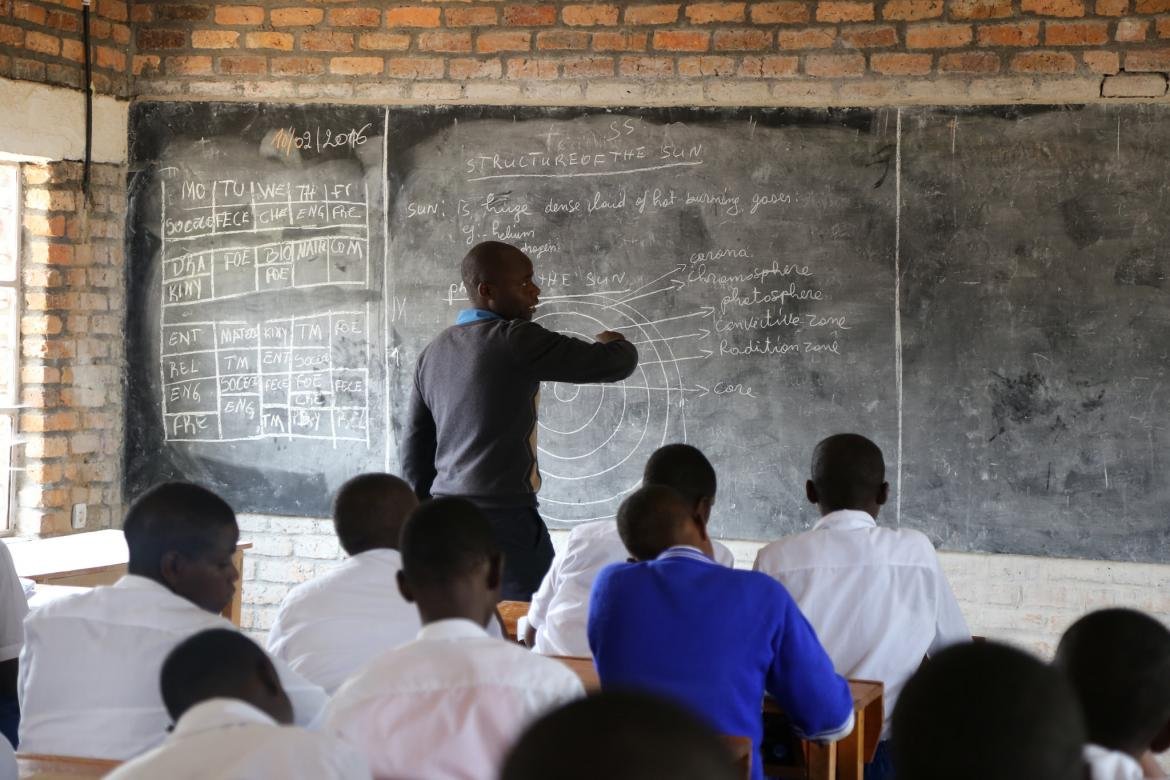 10/02/2016
MO TU WE TH Fr
FECE CHE ENG FRE
FOE BIO COM
KINY FOE
ENT KINY TM FOE
REL TM ENT
ENG FECE FOE FECE
ENG CHE
FRE TM
SS
STRUCTURE OF THE SUN
SUN: Is huge dense cloud of hot burning gases:
helium
THE SUN
corona
Chromosphere
photosphere
Convective zone
Radition zone
Core